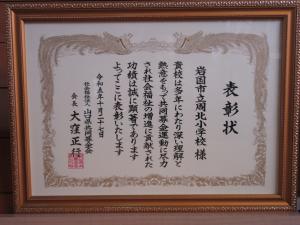 表彰状
岩国市立周北小学校 様
貴校は多年にわたり深い理解と
熱意をもって共同募金運動に尽力
され社会福祉の増進に貢献された
功績は誠に顕著であります
よってここに表彰いたします
令和五年十月二十七日
社会福祉法人 山口県共同募金会
会長 大窪正行